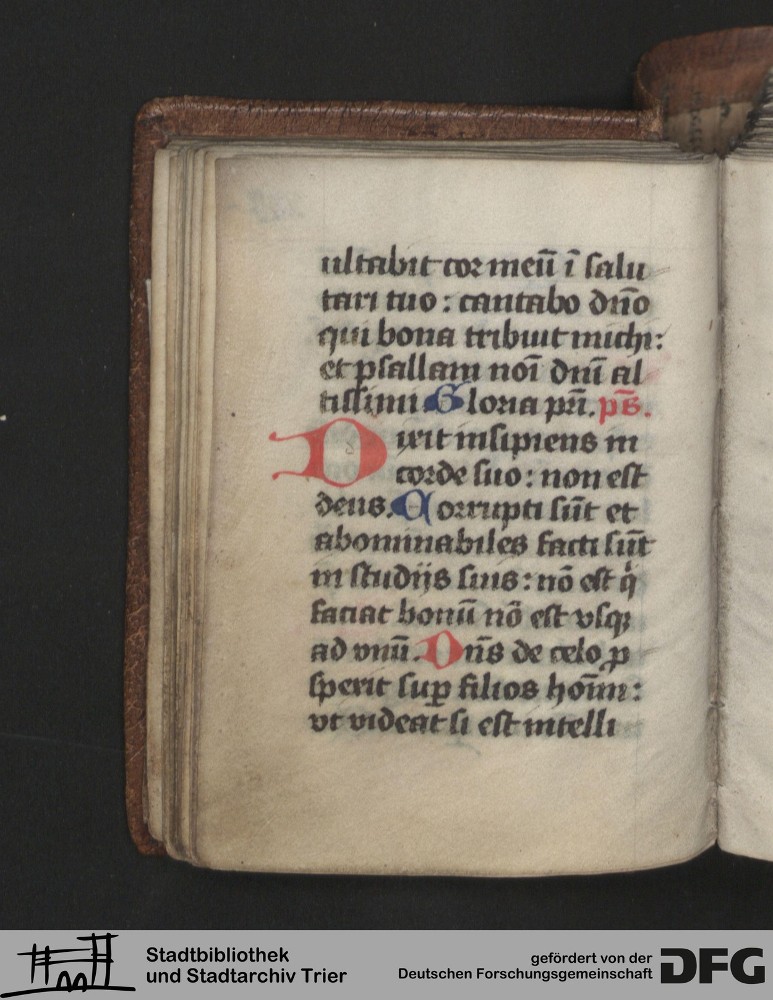 ultabit cor meū ī salu
tari tuo : cantabo dn̄o
qui bona tribuit michi :
et psallam noī dn̄i al
tissimi Gloria pr̄i. ps̄.
Dixit insipiens in
corde suo : non est
deus. Corrupti sūt et
abominabiles facti sūt
in studijs suis : nō est q̇
faciat bonū nō est vsqꝫ
ad vnū. Dn̄s de celo ꝓ
spexit suꝑ filios hoīm :
vt videat si est intelli
Stadtbibliothek
und Stadtarchiv Trier
gefördert von der
Deutschen Forschungsgemeinschaft
DFG